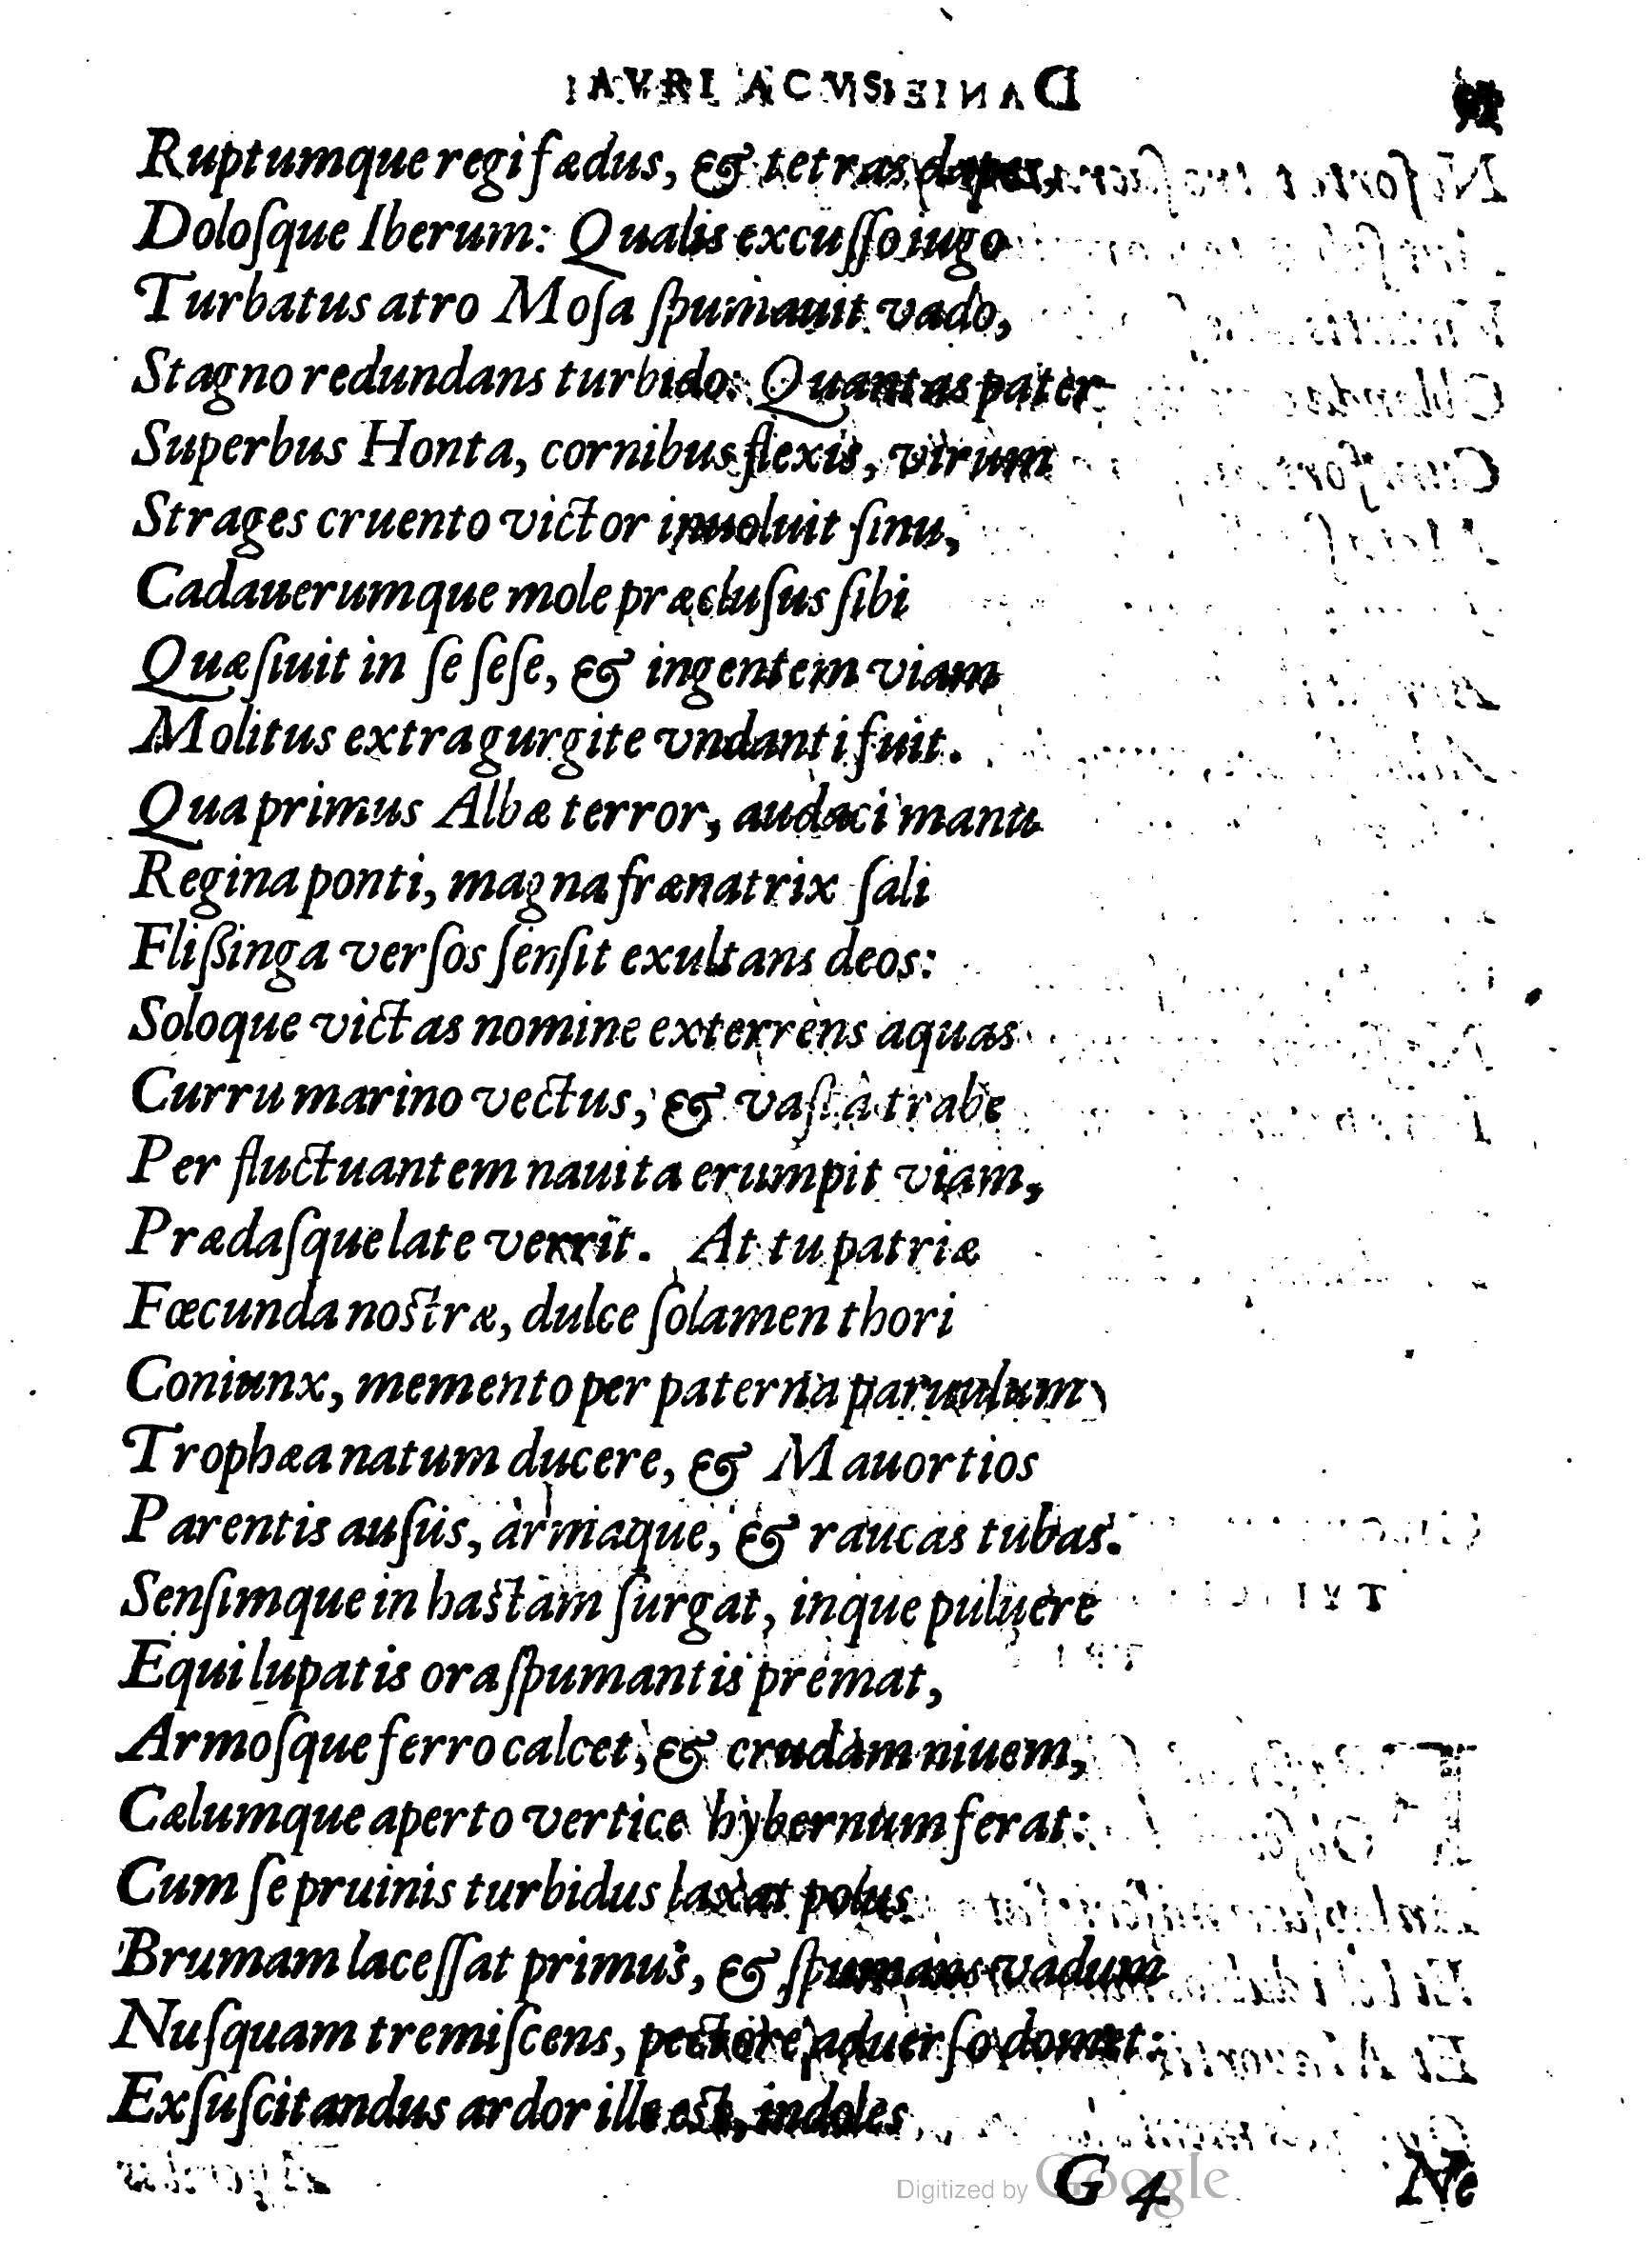 AVRIACVS
Ruptumque regi fædus, & tetras dapes,
Doloſque Iberum: Qualis excuſſo iugo
Turbatus atro Moſa ſpumauit vado,
Stagno redundans turbido: Quantas pater
Superbus Honta, cornibus flexis, virum
Strages cruento victor inuoluit ſinu,
Cadauerumque mole præcluſus ſibi
Quæſiuit in ſe ſeſe, & ingentem viam
Molitus extra gurgite vndanti fuit.
Qua primus Albæ terror, audaci manu
Regina ponti, magna frænatrix ſali
Fliſsinga verſos ſenſit exultans deos:
Soloque victas nomine exterrens aquas
Curru marino vectus, & vaſtâ trabe
Per fluctuantem nauita erumpit viam,
Prædaſque late verrit. At tu patriæ
Fœcunda noſtræ, dulce ſolamen thori
Coniunx, memento per paterna paruulum
Trophæa natum ducere, & Mauortios
Parentis auſus, armaque, & raucas tubas.
Senſimque in haſtam ſurgat, inque puluere
Equi lupatis ora ſpumantis premat,
Armoſque ferro calcet, & crudam niuem,
Cælumque aperto vertice hybernum ferat:
Cum ſe pruinis turbidus laxat polus
Brumam laceſſat primus, & ſpumans vadum
Nuſquam tremiſcens, pectore aduerſo domet:
Exſuſcitandus ardor ille eſt, indoles
G 4 Ne
Digitized by Google